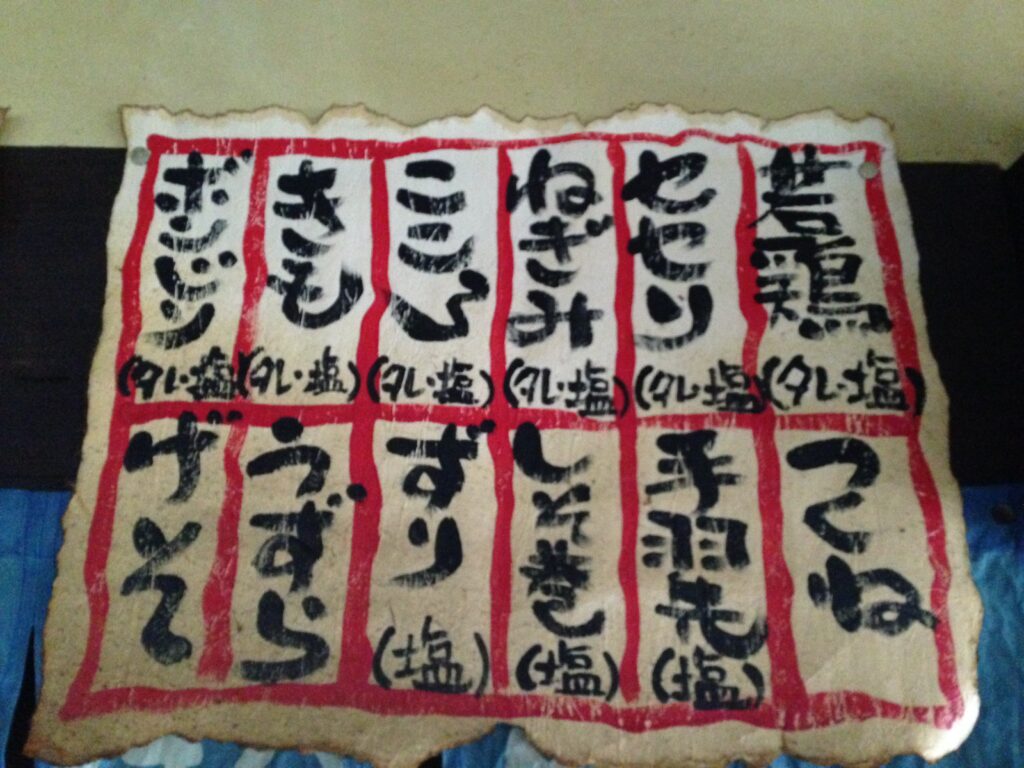 若鶏
(タレ・塩)
セセリ
(タレ・塩)
ねぎみ
(タレ・塩)
こころ
(タレ・塩)
きも
(タレ・塩)
ボンジリ
(タレ・塩)
つくね
手羽先
(塩)
しそ巻
(塩)
ずり
(塩)
うずら
げそ